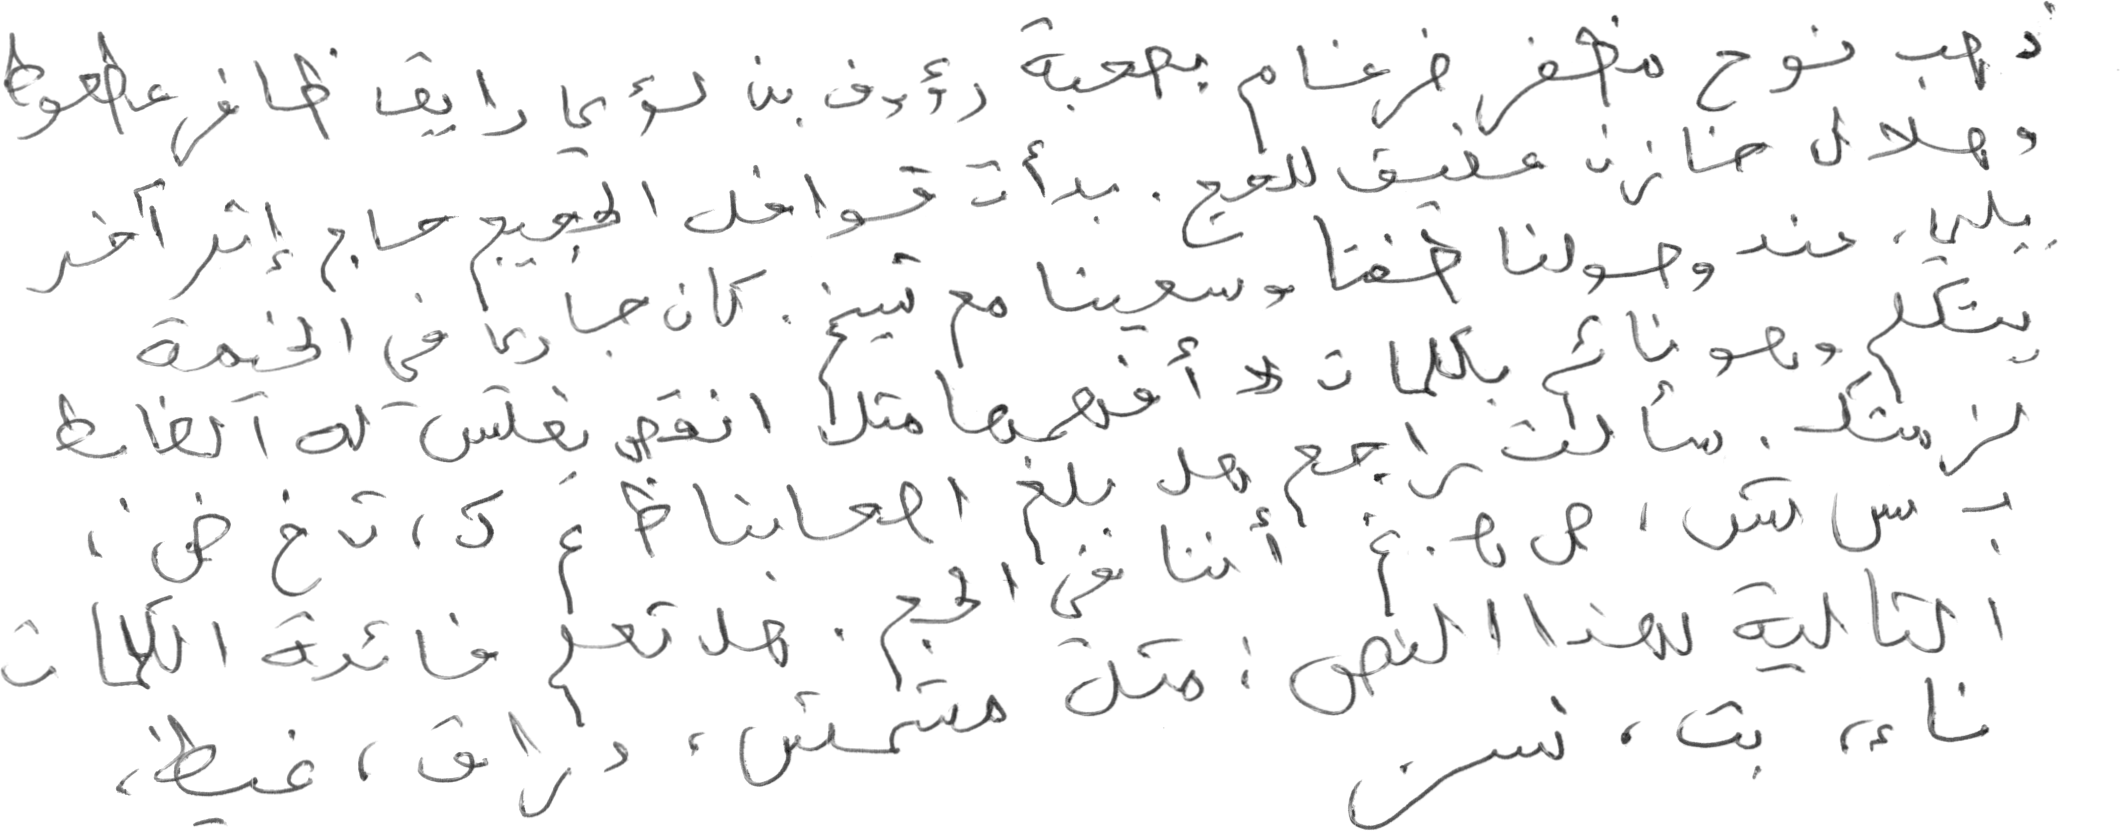 ذهب نوح مظفر ضرغام بصحبة رؤوف بن لؤي رايق ظافر عطعوط
وهلال خازن عفيق للحج. بدأت قوافل الحجيج حاج إثر آخر
يلي، عند وصولنا خفنا وسعينا مع شيخ. كان جاري في الخيمة
يتكلم وهو نائم بكلمات لا أفهمها مثلا انقض بغلس له آلفاظ
لزمتك. سألت راجع هل بلغ اصحابنا ظ ع ك، ث خ ض؛
ب س ش، ص ه. غ أننا في الحج. هل تعلم فائدة الكلمات
التالية لهذا النص؛ مثلة مشمش، دراق، غيظ،
ناء، بت، نسر